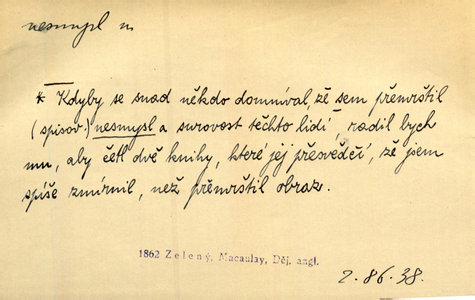 nesmysl m
* Kdyby se snad někdo domníval, že sem přemrštil
(spisov.) nesmysl a surovost těchto lidí, radil bych
mu, aby četl dvě knihy, které jej přesvědčí, že jsem
spíše zmírnil, než přemrštil obraz.
1862 Zelený, Macaulay, Děj. angl.
2.86.38.